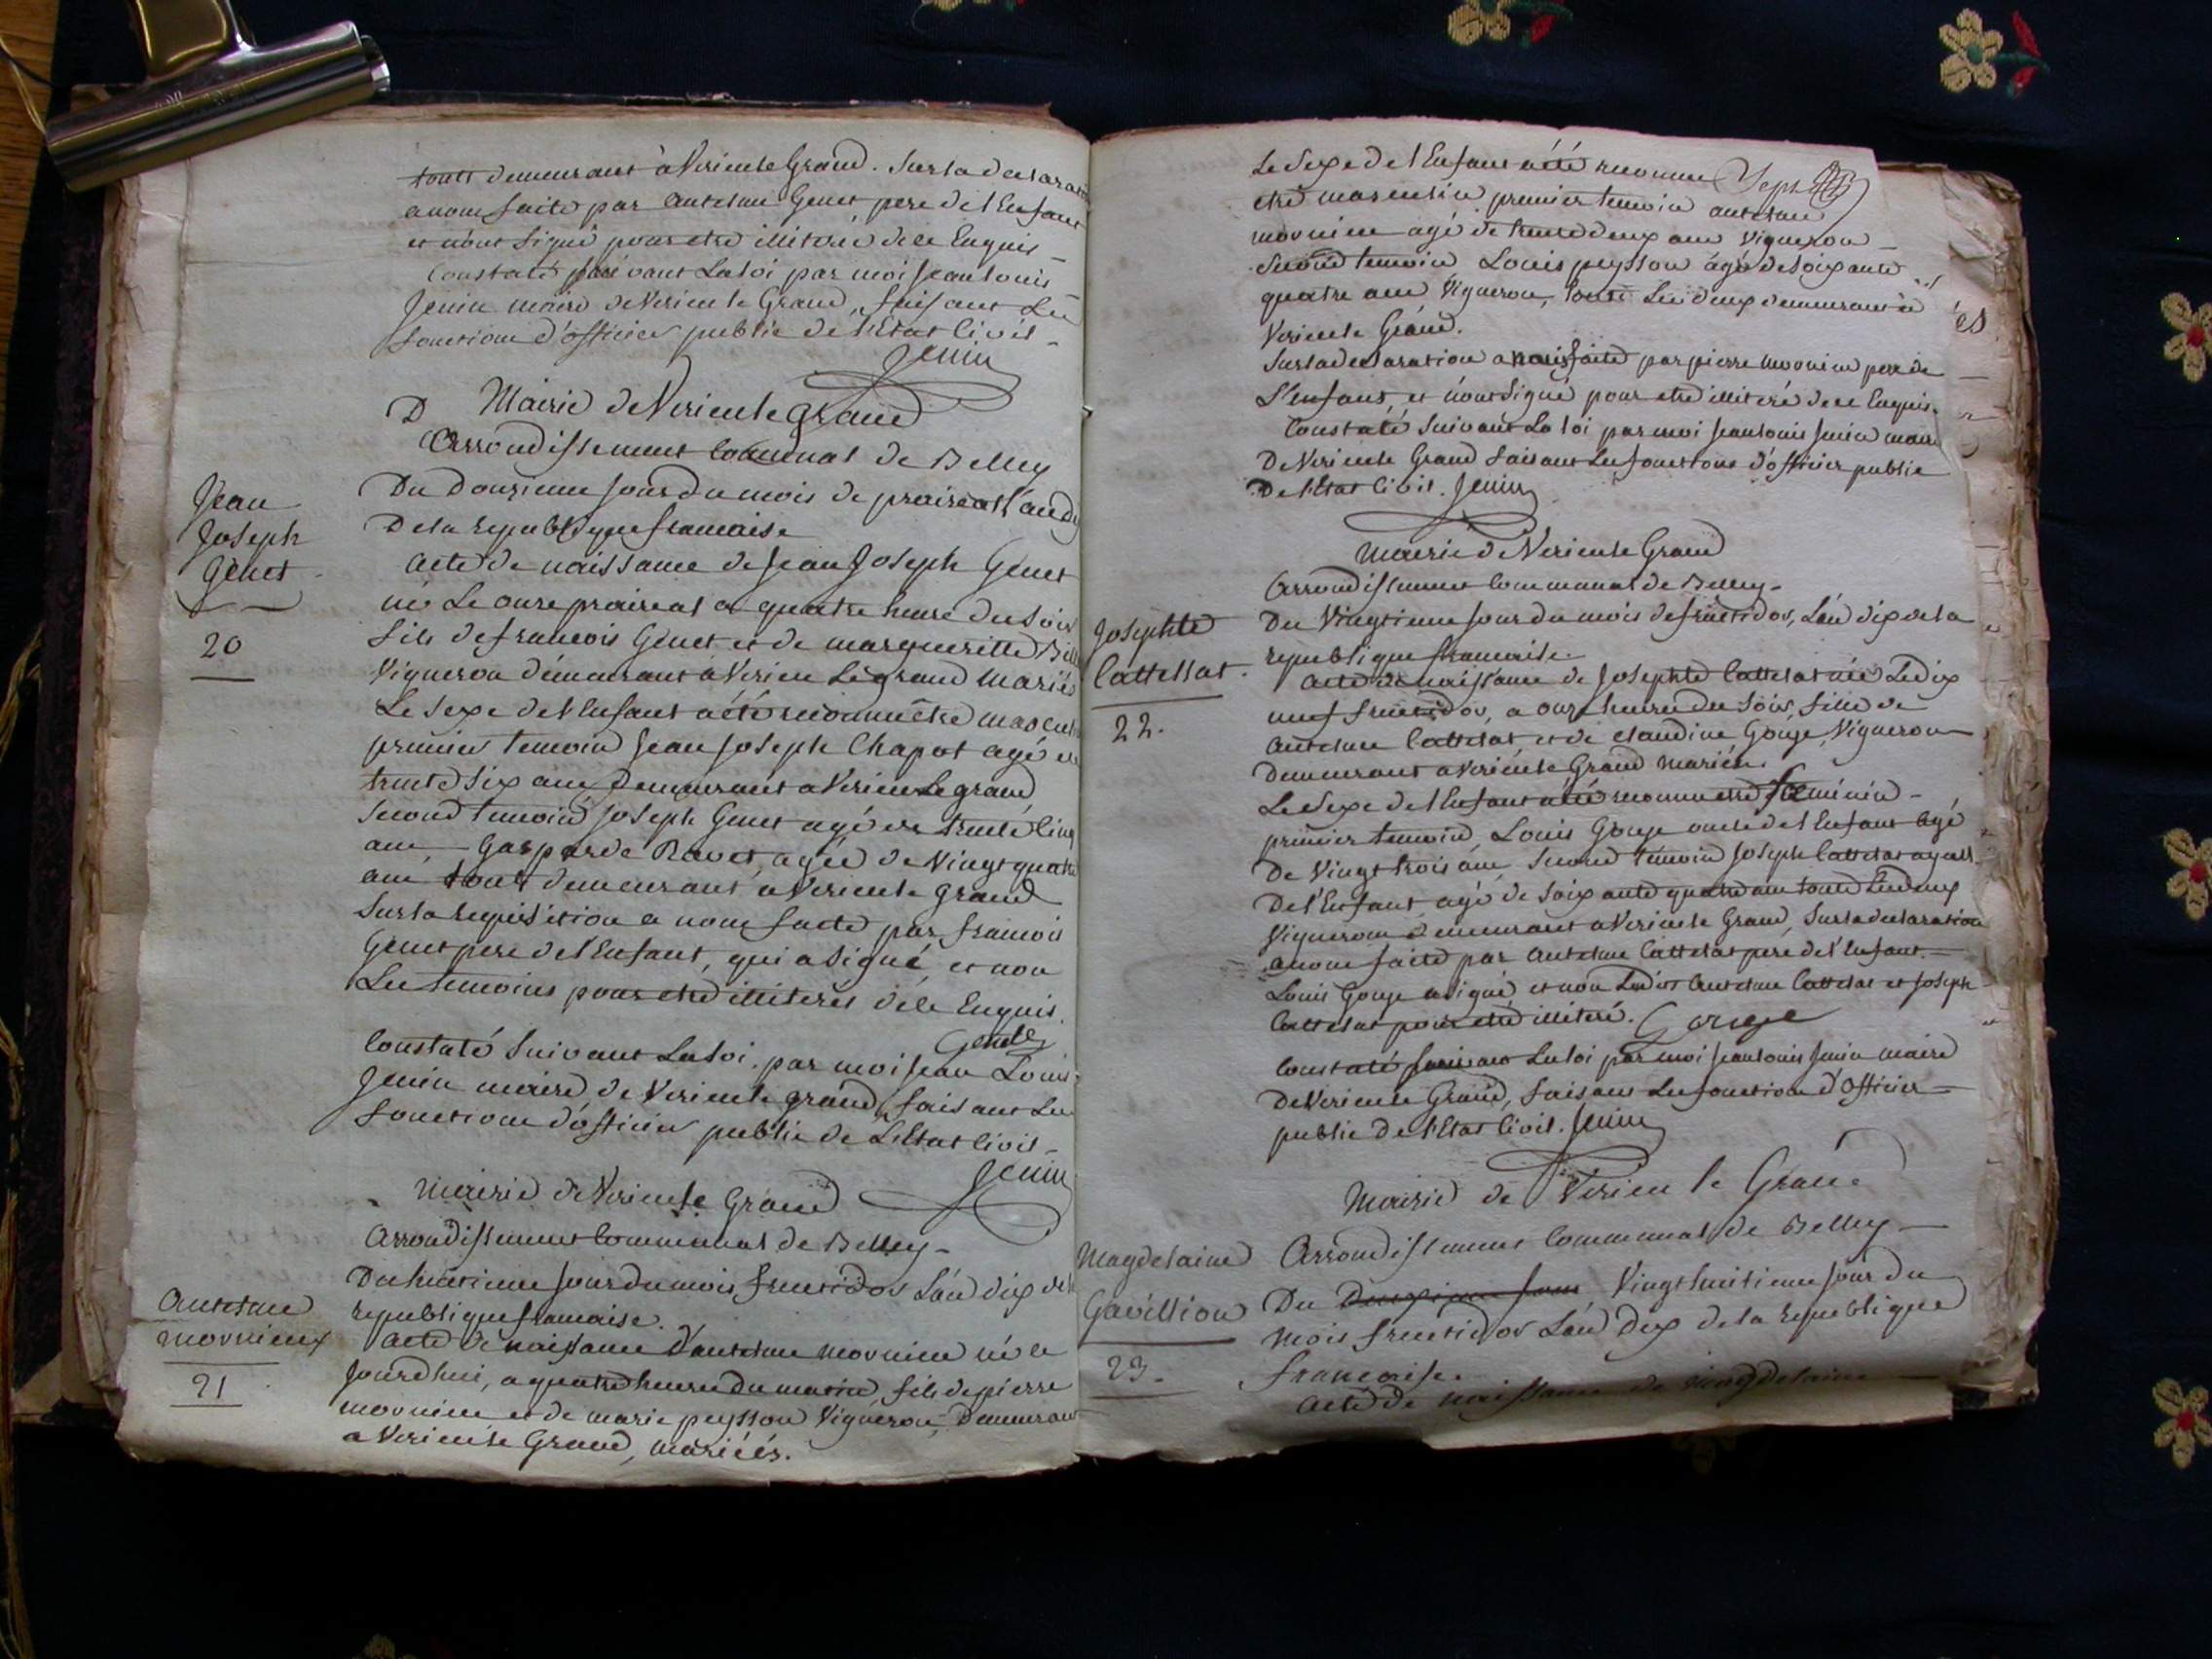 touts demeurant à Virieu le Grand. Sur la declaration
a nous faite par Antelme Genet pere de l'Enfant
et n'ont Signé pour etre illiteré de ce Enquis
Constaté suivant La loi par moi Jean Louis
Jenin maire de Virieu le Grand, faisant Les
fonctions d'officier public de l'Etat Civil
Jenin
D Mairie de Virieu le grand
Arrondissement Communal de Belley
Jean
Joseph
Genet
20
Du Douzieme Jour du mois de prairéal l'an dix
De la republique francaise
acte de naissance de Jean Joseph Genet
né Le onze praireal a quatre heure du Soir
fils de francois Genet et de margueritte
Vigneron demeurant a Virieu Le grand Mariés
Le Sexe de l'Enfant a été reconnu être masculin
premier temoin Jean Joseph Chapot agé de
trente Six ans Demeurant a Virieu Le grand
Second temoin Joseph Genet agé de trente Cinq
ans, Gasparde Ravet, agée de Vingt quatre
ans tout demeurant a Virieu le grand
Sur la requisition a nous faite par francois
Genet pere de l'Enfant, qui a Signé, et non
Les temoins pour etre illiteres de ce Enquis.
Genet
Constaté Suivant La loi par moi Jean Louis
Jenin maire de Virieu le grand, faisant Les
fonctions d'officier public de L'Etat Civil
Jenin
Mairie de Virieu le Grand
Arrondissement Communal de Belley
Antelme
mornieux
21
Du huitieme Jour du mois fructidor L'an dix de la
republique francaise.
acte de naissance d'antelme mornieu né le
Jourd'hui, a quatre heure du matin, fils de pierre
mornieu et de marie peysson Vigneron, Demeurant
a Virieu le Grand, mariéés.
Le Sexe de l'Enfant a été reconnu
etre masculin premier temoin antelme
mornieu agé de trente deux ans Vigneron
Second temoin Louis peysson agé de Soixante
quatre ans Vigneron, touts Les deux demeurant à
Virieu le Grand.
Sur la declaration a nous faite par pierre mornieu pere de
L'enfant, et n'ont Signé pour etre illiteré de ce Enquis.
Constaté Suivant La loi par moi Jean Louis Jenin maire
De Virieu le Grand faisant Les fonctions d'officier public
De l'Etat Civil. Jenin
Mairie de Virieu le Grand
Arrondissement Communal de Belley
Josephte
Cattellat.
22.
Du Vingtieme Jour du mois de fructidor, L'an dix de la
republique francaise.
acte de naissance de Josephte Cattelat née Le dix
neuf fructidor, a onze heure du Soir, fille de
antelme Cattelat et de claudine Gouje, Vigneron
Demeurant a Virieu le Grand mariés.
Le Sexe de l'Enfant a été reconnu etre feminin
premier temoin Louis Gouje oncle de l'Enfant agé
De Vingt trois ans, Second temoin Joseph Cattelat ayeul
De l'Enfant, agé de Soixante quatre ans touts Les deux
Vigneron demeurant a Virieu le Grand, Sur la declaration
a nous faite par antelme Cattelat pere de l'Enfant.
Louis Gouje a Signé et non Ledit antelme Cattelat et Joseph
Cattelat pour etre illiteré. Gouge
Constaté Suivant La loi par moi Jean Louis Jenin maire
De Virieu le Grand, faisant Les fonction d'officier
public De l'Etat Civil. Jenin
Mairie de Virieu le Grand
Arrondissement Communal de Belley
Magdelaine
Gavillion
23.
Du Vingt huitieme Jour du
mois fructidor L'an Dix de la republique
francaise.
acte de naissance de magdelaine